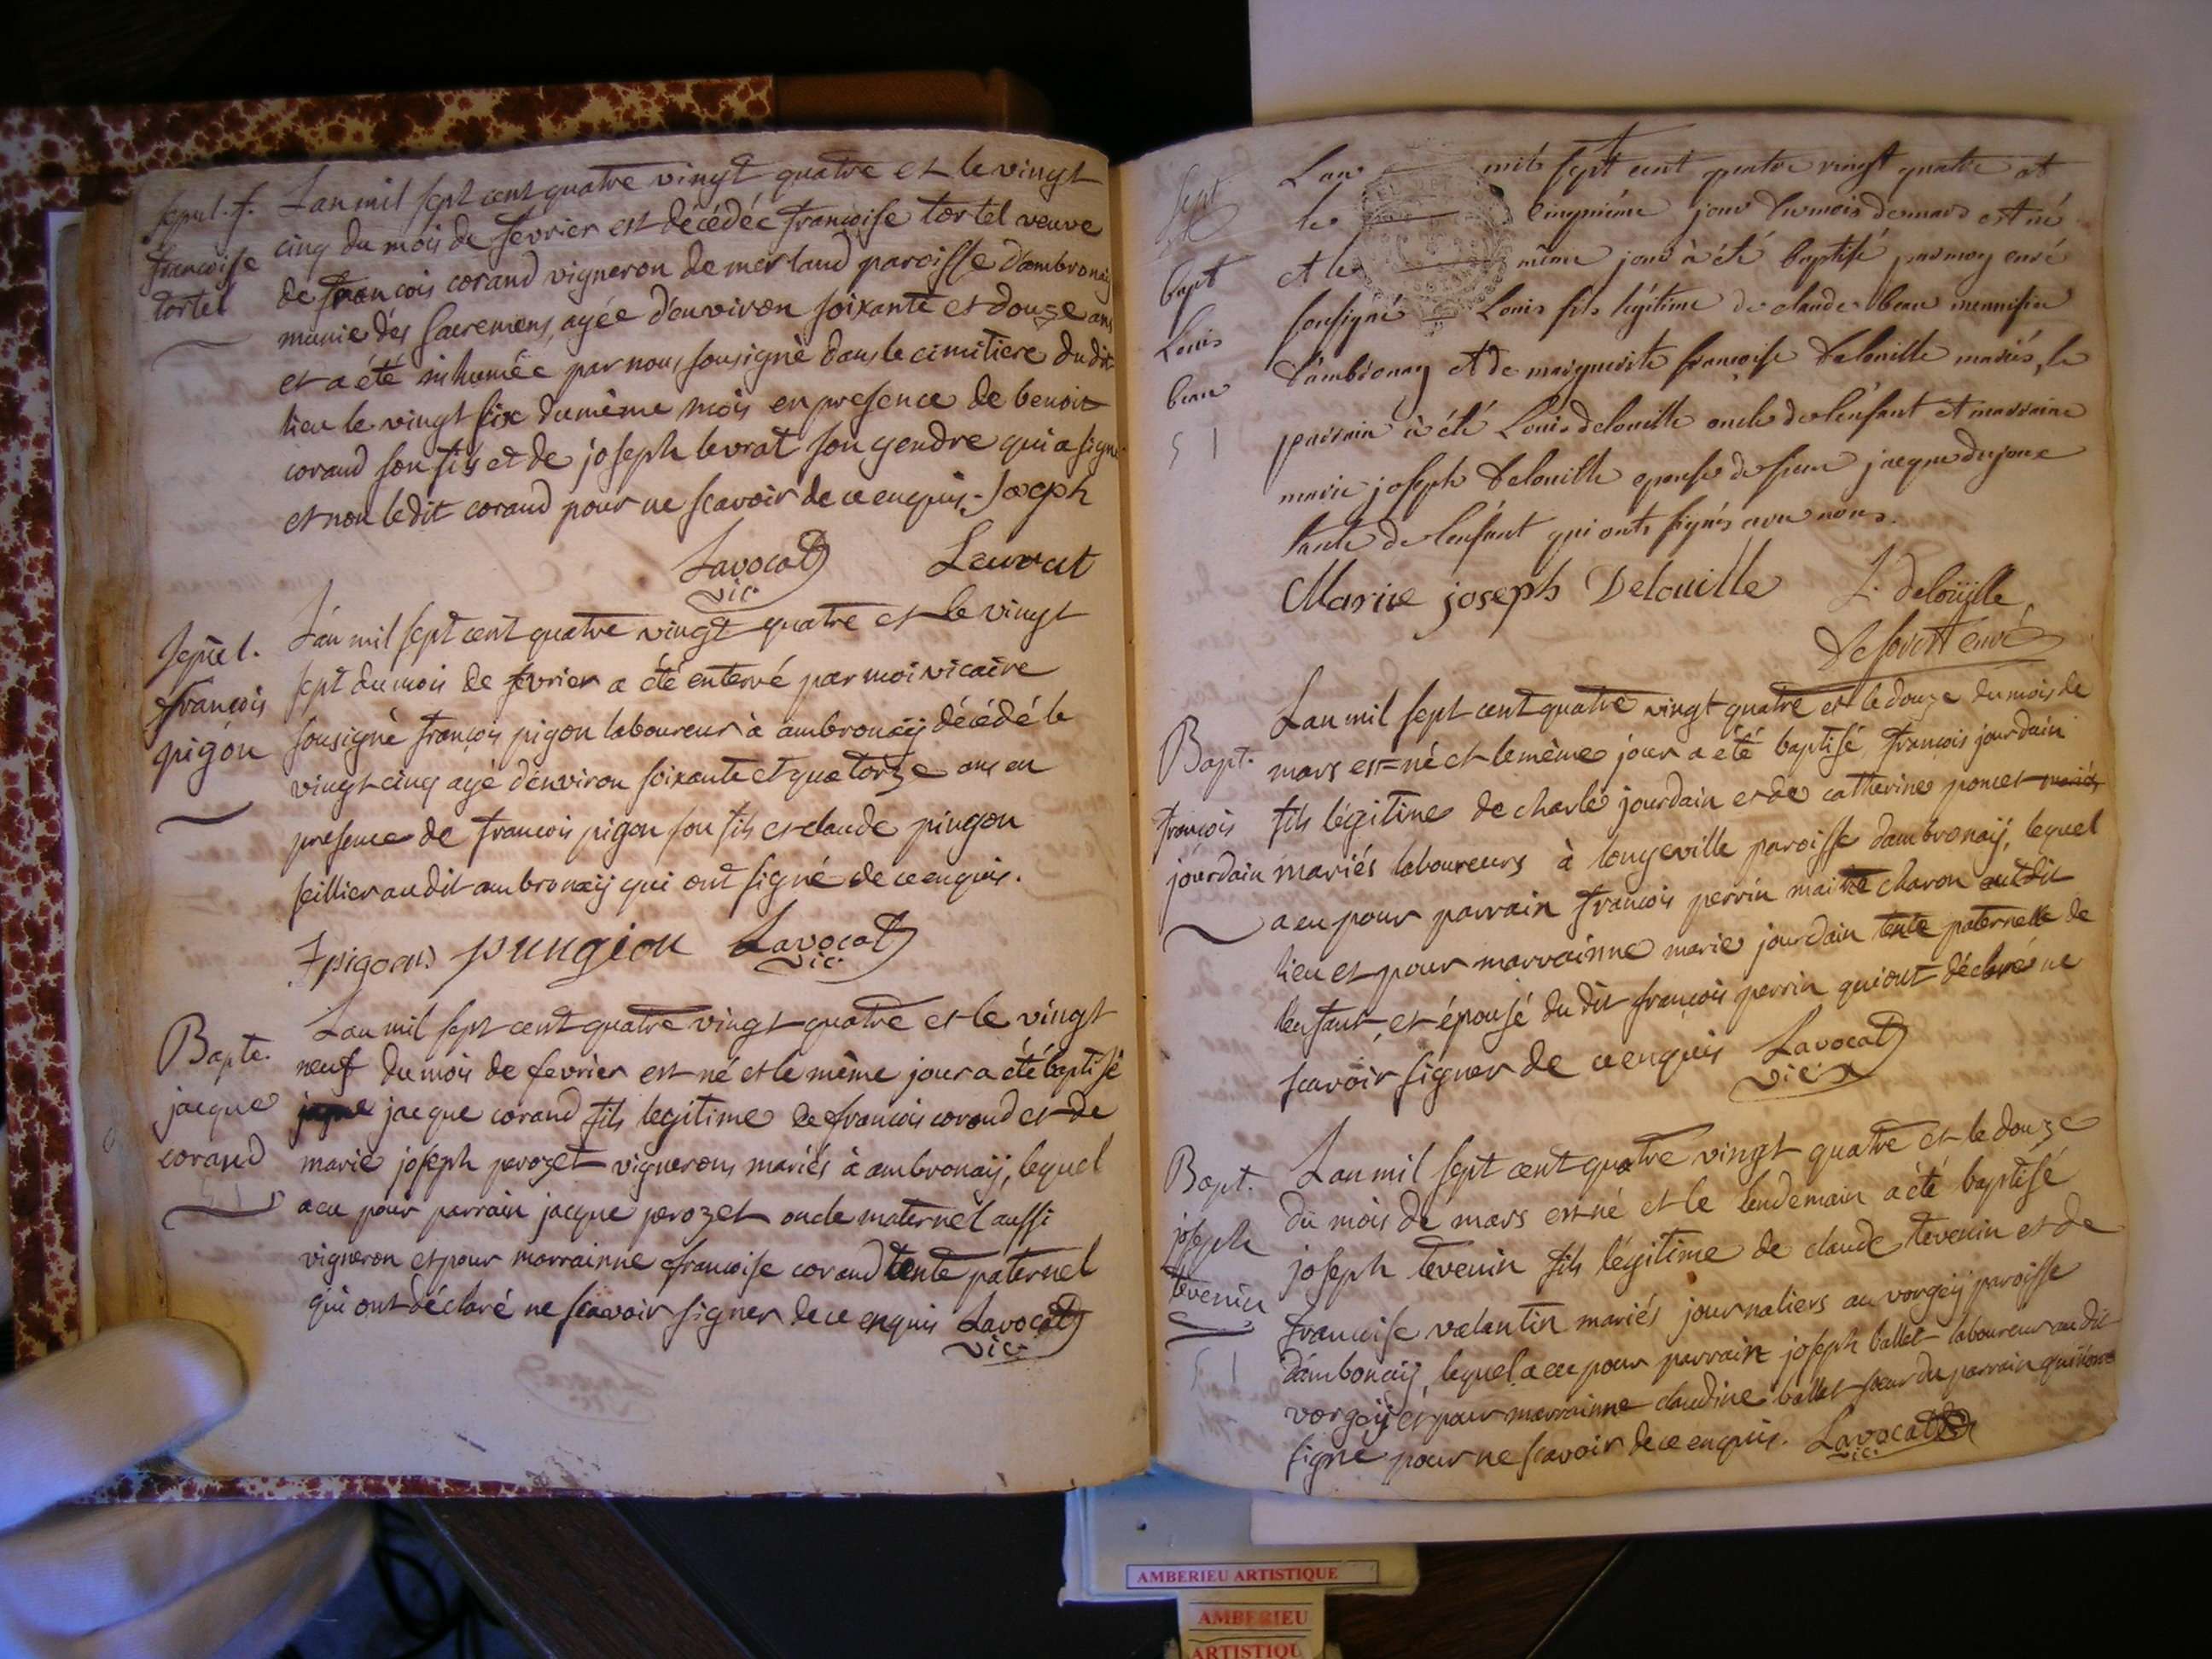 sepul. f.
françoise
tortel
L'an mil sept cent quatre vingt quatre et le vingt
cinq du mois de fevrier est décédée françoise tortel veuve
de françois corand vigneron de merland paroisse d'ambronaÿ
munie des sacremens, agée d'environ soixante et douze ans
et a été inhumée par nous sousigné dans le cimitiere du dit
lieu le vingt six du même mois en presence de benoit
corand son fils et de joseph levrat son gendre qui a signé
et non le dit corand pour ne scavoir de ce enquis. Joseph
Lavocat Leuvrat
vic.
sepuel.
françois
pigon
L'an mil sept cent quatre vingt quatre et le vingt
sept du mois de fevrier a été enterré par moi vicaire
sousigné françois pigon laboureur à ambronaÿ décédé le
vingt cinq agé d'environ soixante et quatorze ans en
presence de françois pigon son fils et claude pingon
seillier au dit ambronaÿ qui ont signé de ce enquis.
f pigon pungion Lavocat
vic.
Bapte.
jacque
corand
L'an mil sept cent quatre vingt quatre et le vingt
neuf du mois de fevrier est né et le même jour a été baptisé
jacque corand fils legitime de françois corand et de
marie joseph perozet vignerons mariés à ambronaÿ, lequel
a eu pour parrain jacque perozet oncle maternel aussi
vigneron et pour marrainne françoise corand tente paternel
qui ont déclaré ne scavoir signer de ce enquis Lavocat
vic.
bapt
Louis
beau
51
L'an mil sept cent quatre vingt quatre et
le cinquième jour du mois de mars est né
et le même jour à été baptisé par moy curé
sousigné Louis fils légitime de claude beau menuisier
d'ambronay et de marguerite françoise Delouille mariés, le
parrain à été Louis delouille oncle de l'enfant et marraine
marie joseph Delouille epouse de sieur jacque dujoux
tante de l'enfant qui onts signés avec nous.
Marie joseph Delouille L. deloüille
curé
Bapt.
françois
jourdain
L'an mil sept cent quatre vingt quatre et le douze du mois de
mars est né et le même jour a été baptisé françois jourdain
fils légitime de charle jourdain et de catherine poncet mariés
mariés laboureurs à longeville paroisse dambronaÿ, lequel
a eu pour parrain françois perrin maitre charon audit
lieu et pour marrainne marie jourdain tente paternelle de
lenfant, et épousé du dit françois perrin qui ont déclaré ne
scavoir signer de ce enquis Lavocat
vic.
Bapt.
joseph
tevenin
51
L'an mil sept cent quatre vingt quatre et le douze
du mois de mars est né et le lendemain a été baptisé
joseph tevenin fils légitime de claude tevenin et de
françoise valantin mariés journaliers au vorgeÿ paroisse
dámbonaÿ, lequel a eu pour parrain joseph ballet laboureur au dit
vorgeÿ et pour marrainne claudine ballet soeur du parrain qui n'ont
signé pour ne scavoir de ce enquis. Lavocat
vic.
AMBERIEU ARTISTIQUE
AMBERIEU
ARTISTIQU